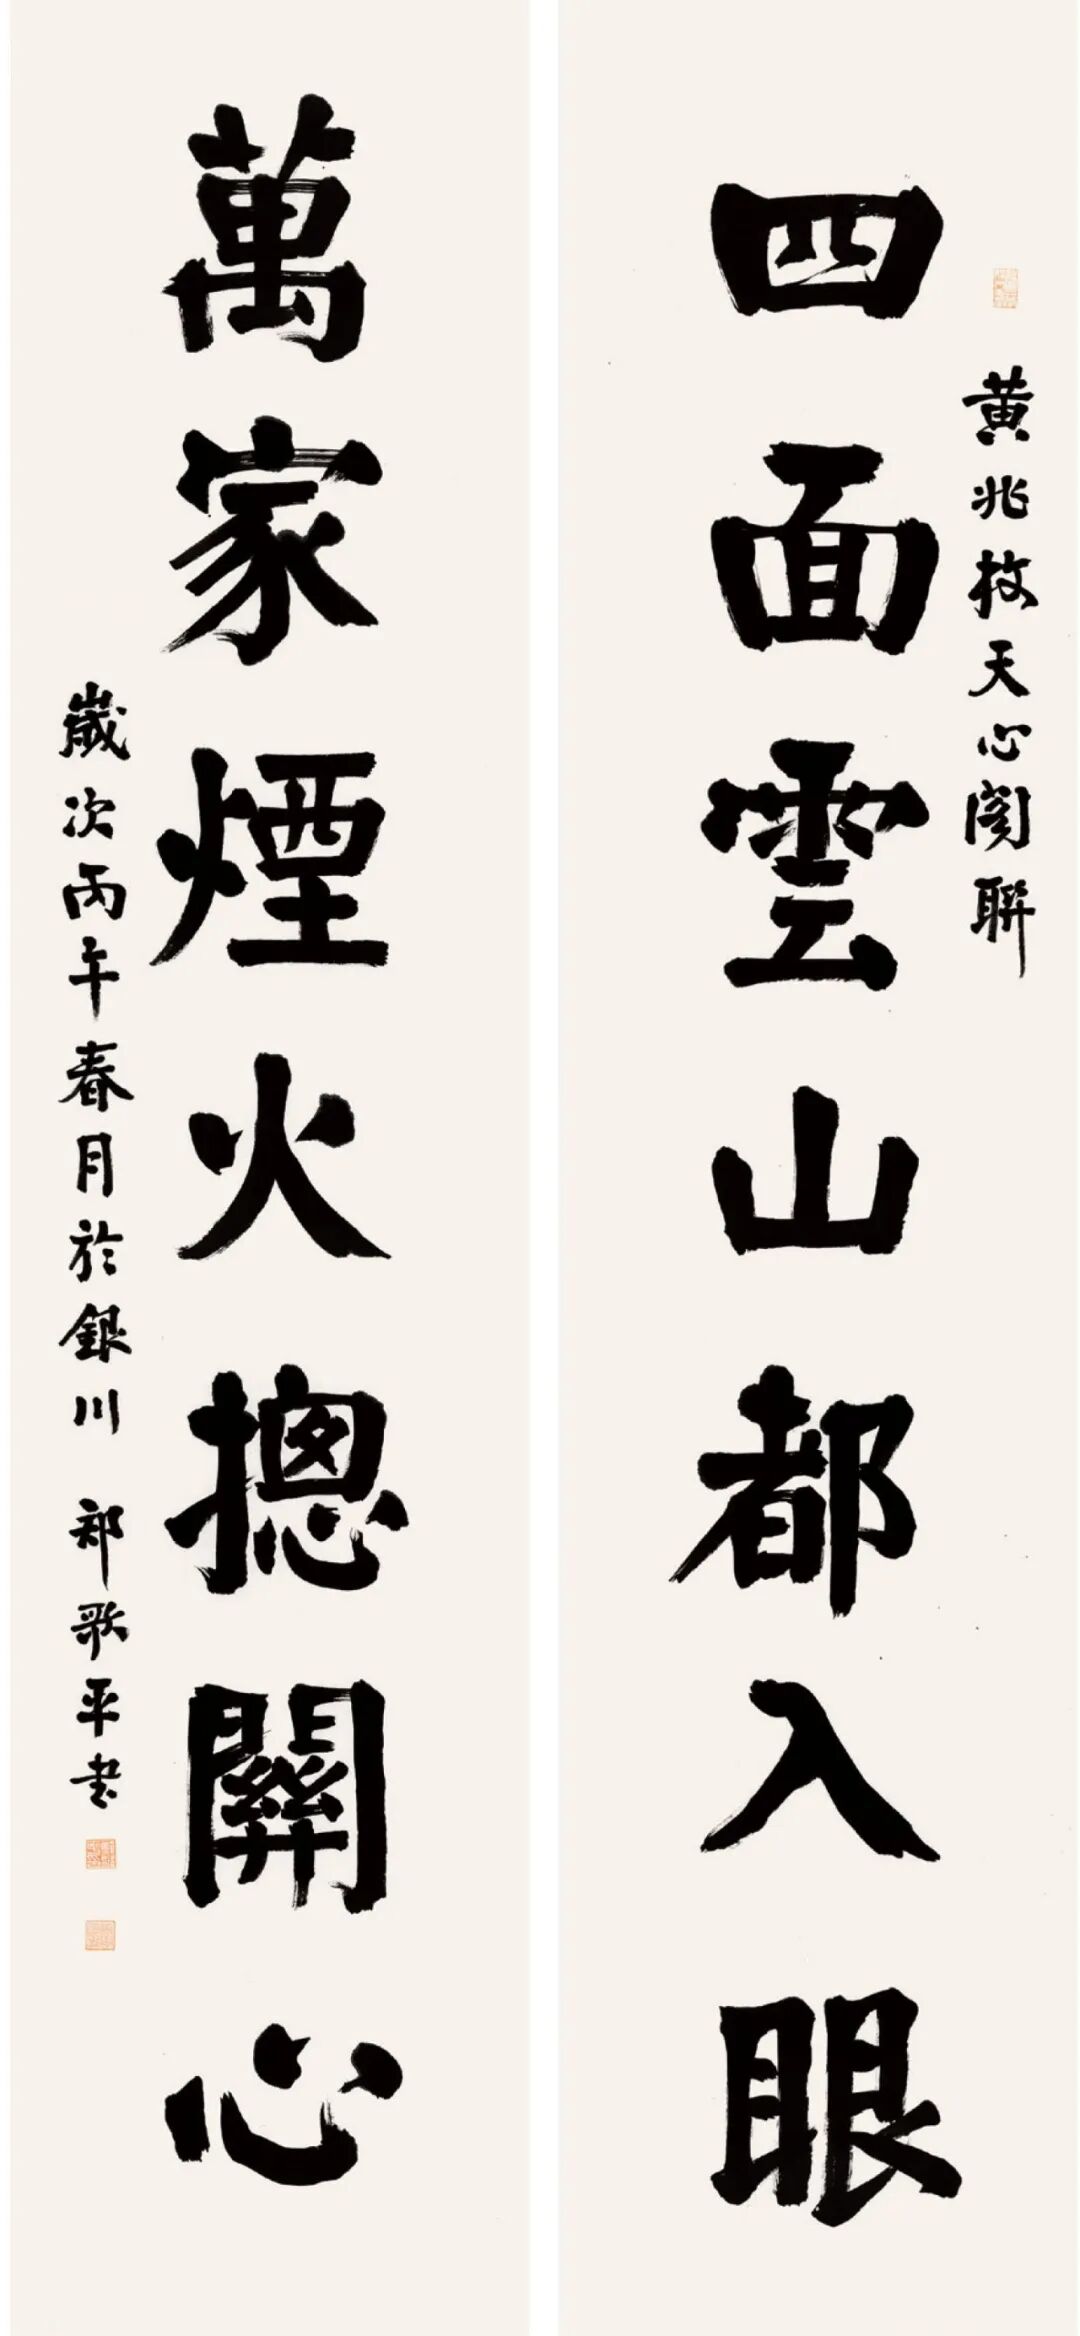 黄兆枚天心阁联
四面雲山都入眼
萬家煙火摠關心
歲次丙午春月於銀川 郑歌平书